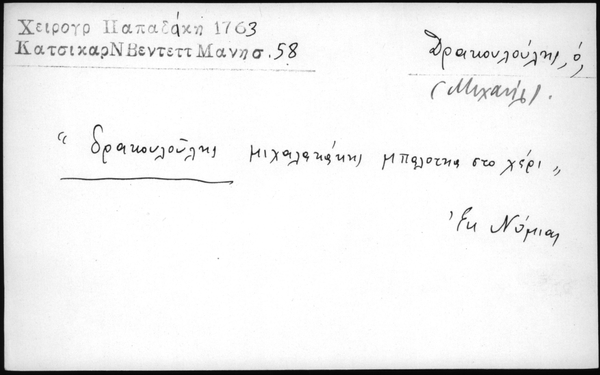 Χειρογρ Παπαδάκη 1763
ΚατσικαρΝΒεντεττΜανησ.58
Δρακουλούλης, ὁ,
(Μιχαήλ).
"δρακουλούλης μιχαλακάκης μπαλοτκα στο χέρι"
Ἐκ Νόμιας